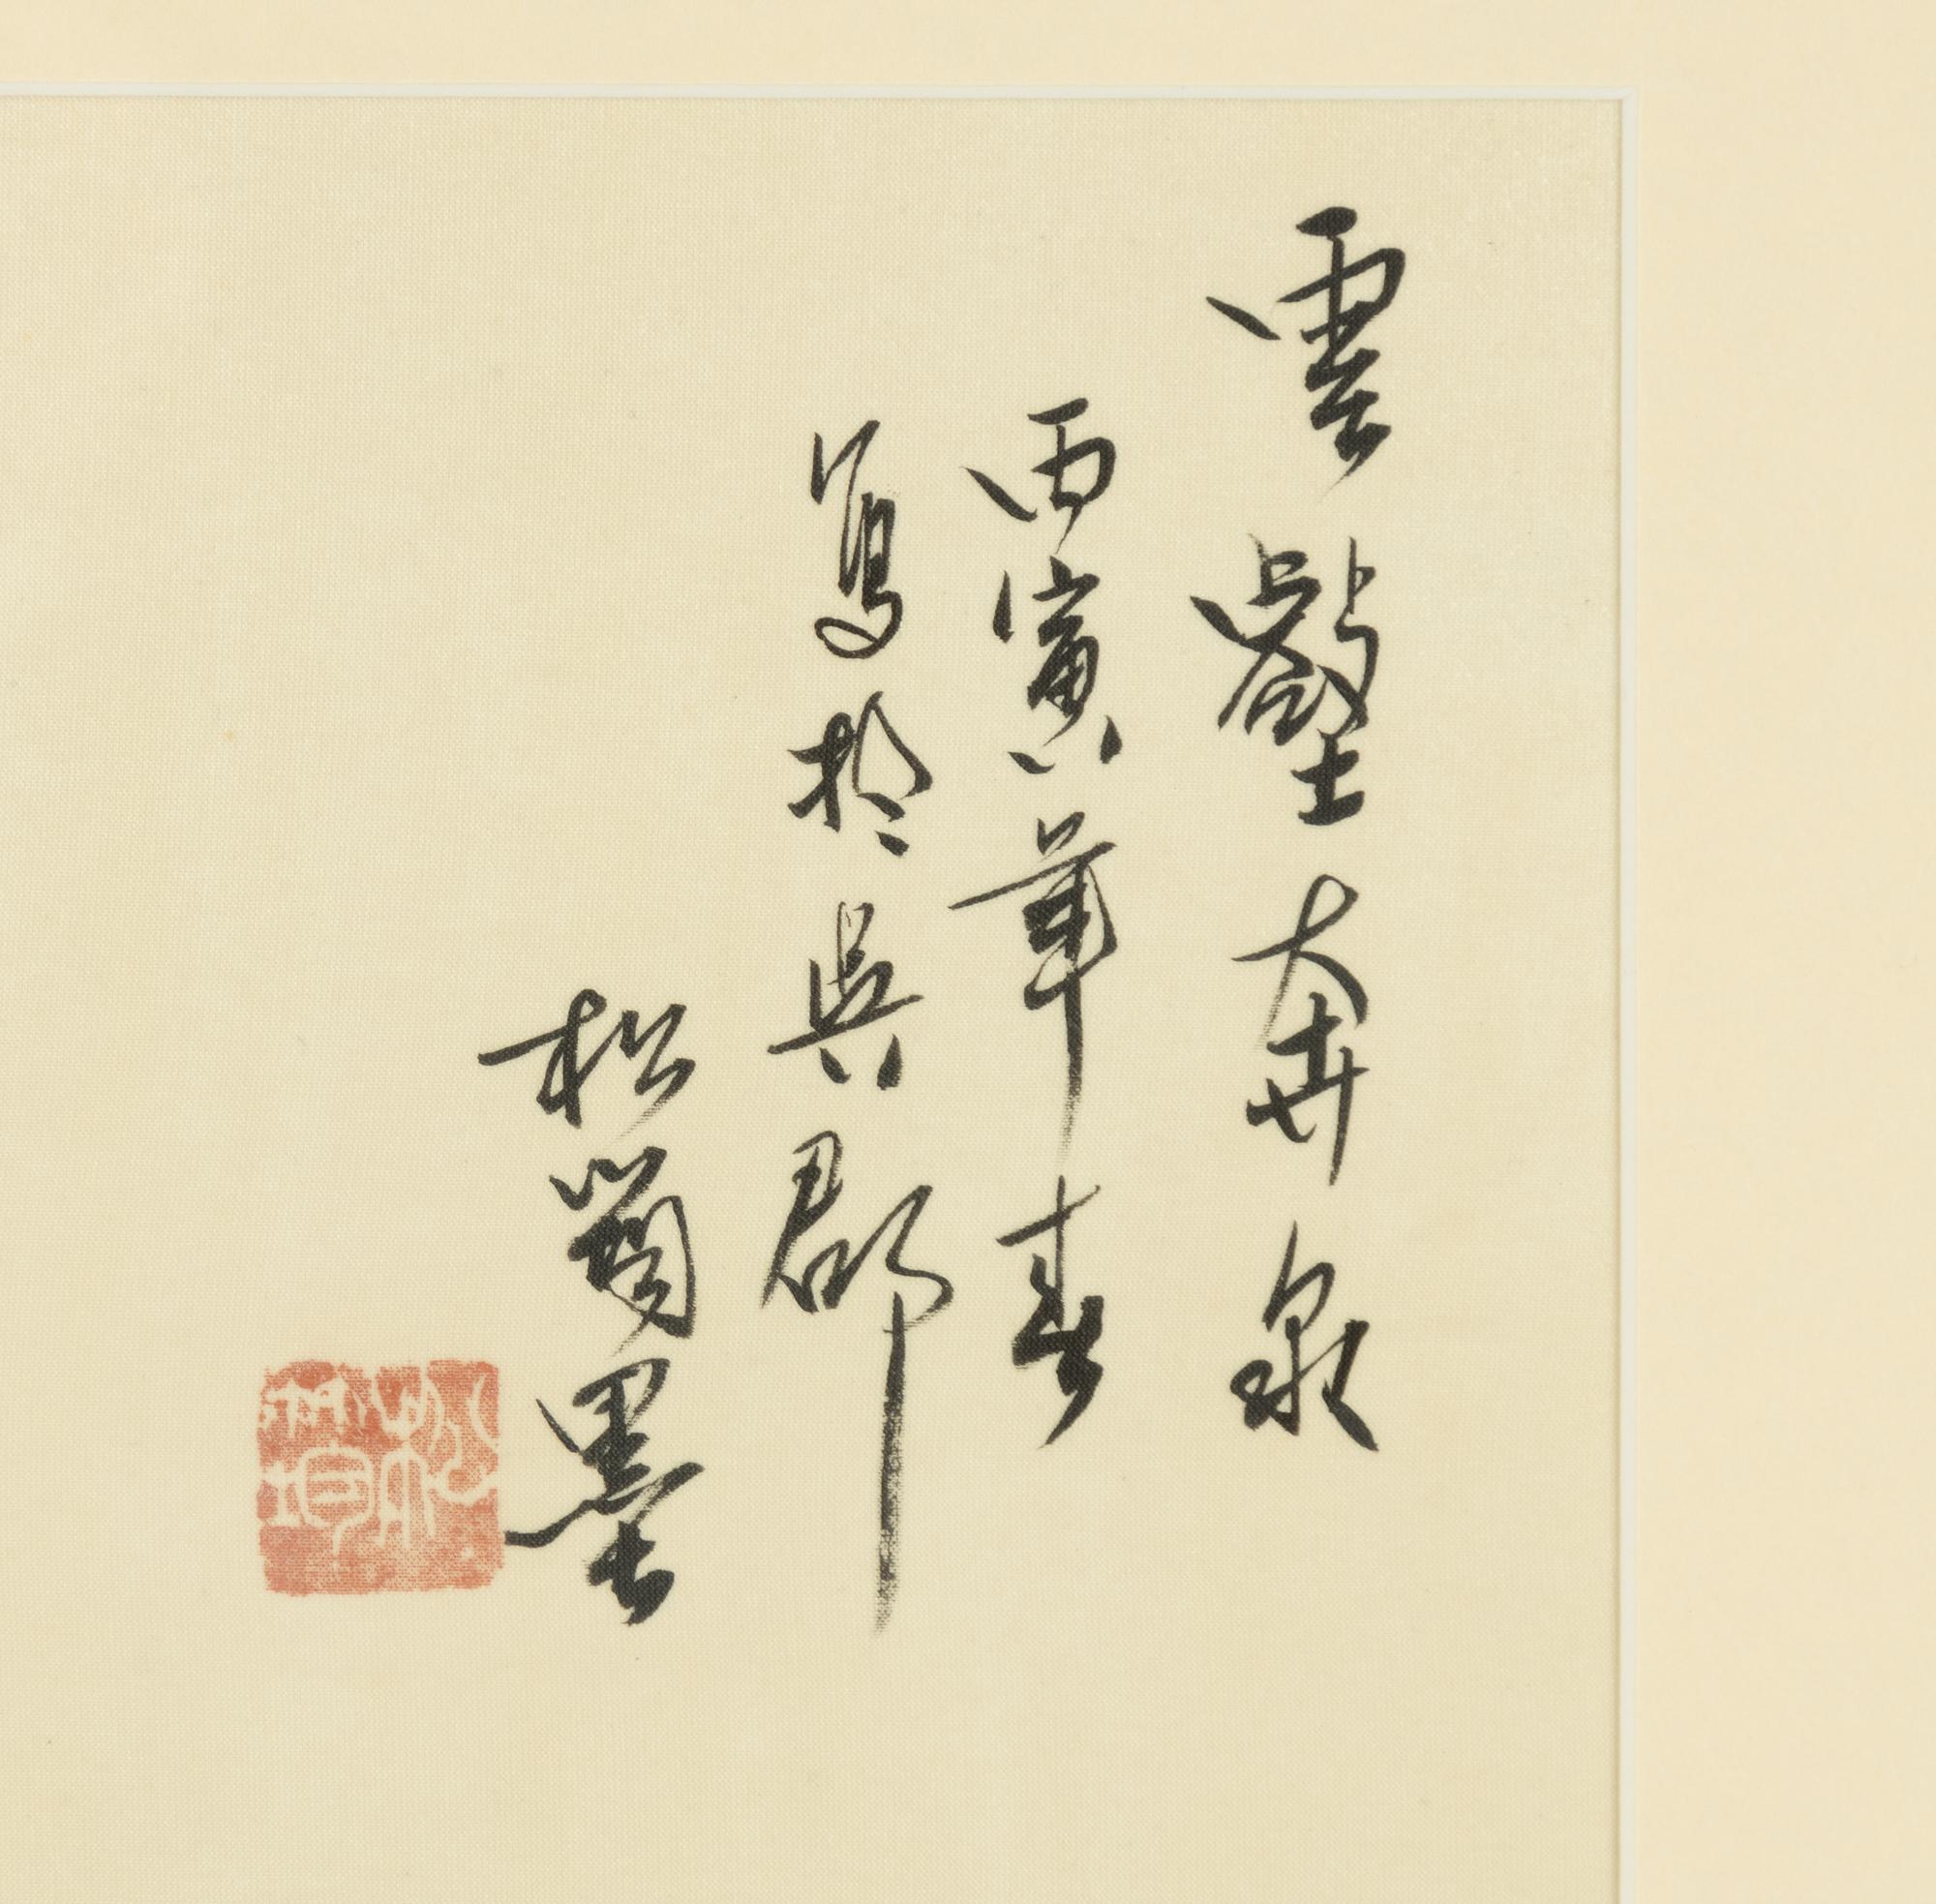 雲壑奔泉
丙寅年春
寫於吳郡
松筍墨